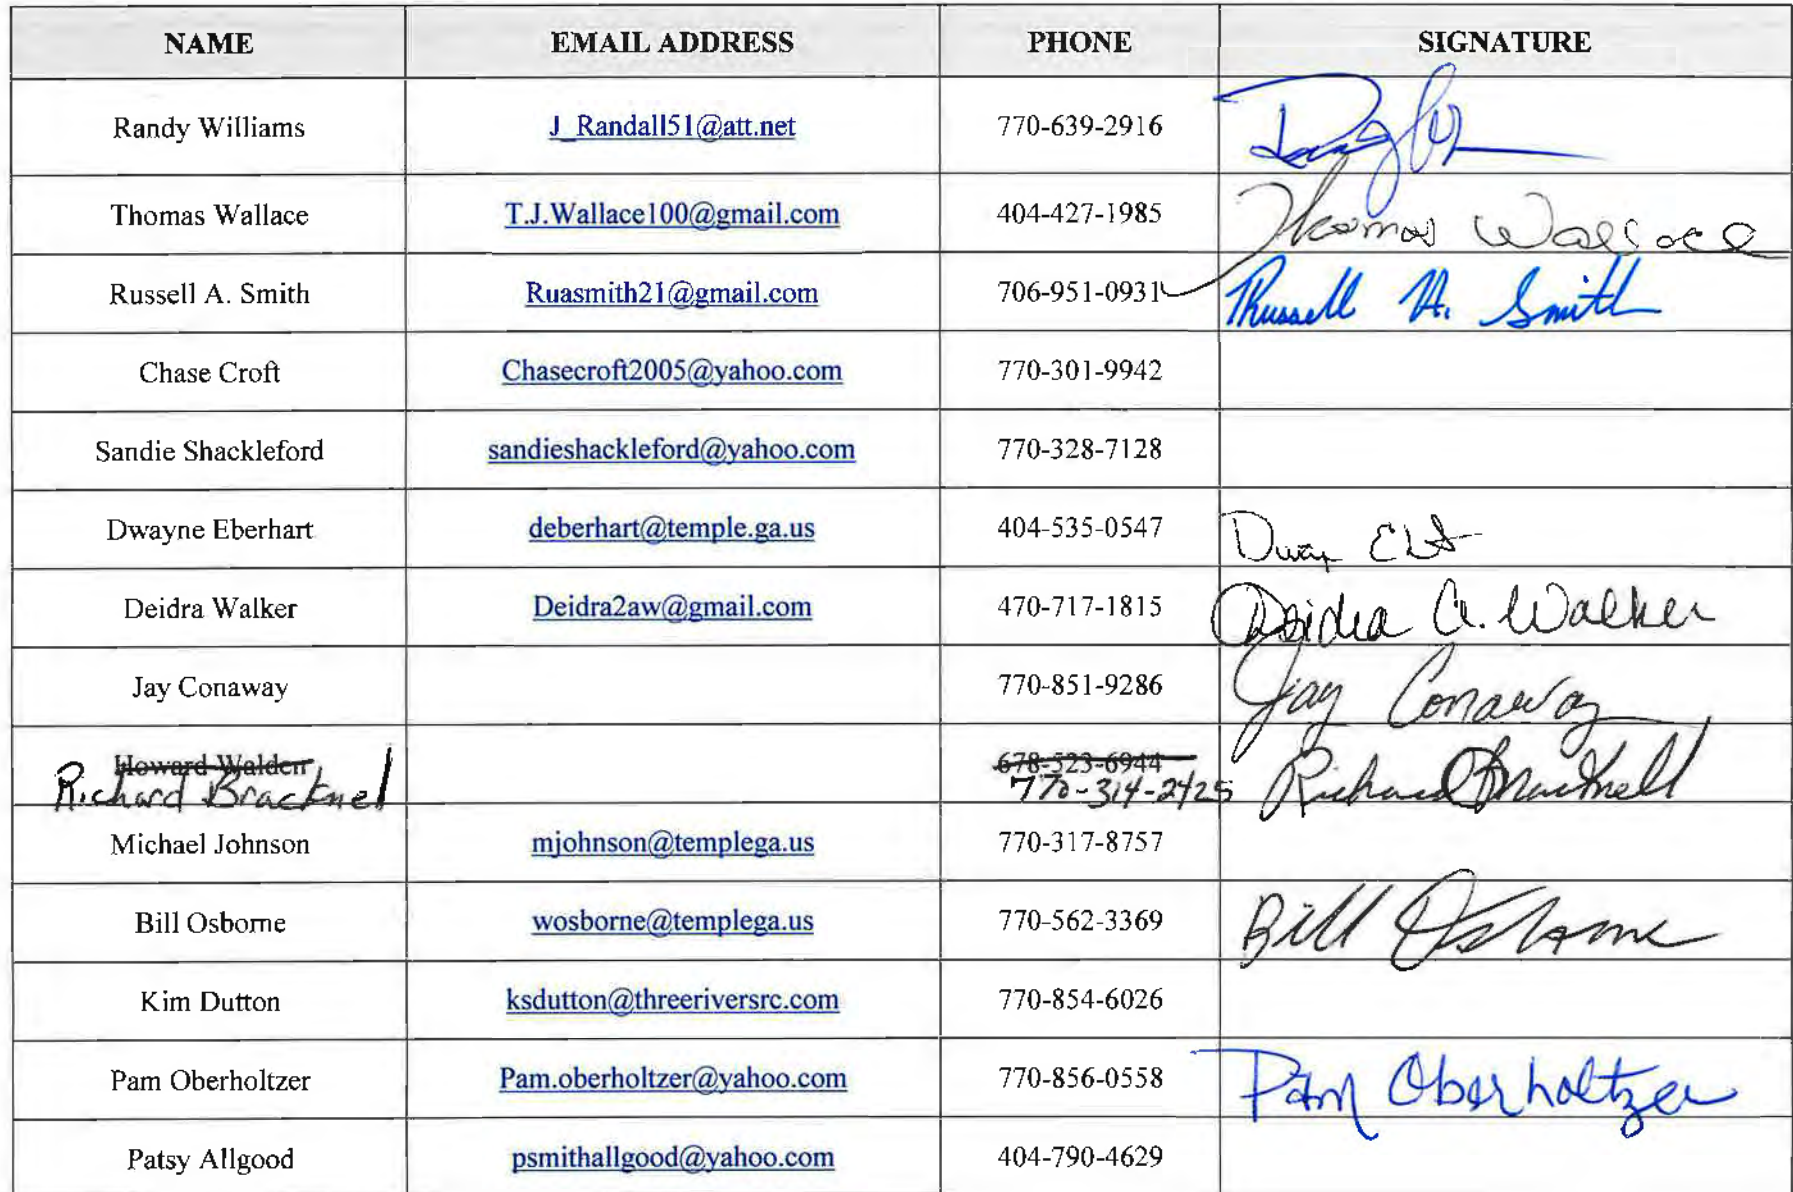 NAME EMAIL ADDRESS PHONE SIGNATURE
Randy Williams J_Randall51@att.net 770-639-2916
Thomas Wallace T.J.Wallace100@gmail.com 404-427-1985 Thomas Wallace
Russell A. Smith Ruasmith21@gmail.com 706-951-0931 Russell A. Smith
Chase Croft Chasecroft2005@yahoo.com 770-301-9942
Sandie Shackleford sandieshackleford@yahoo.com 770-328-7128
Dwayne Eberhart deberhart@temple.ga.us 404-535-0547
Deidra Walker Deidra2aw@gmail.com 470-717-1815 Deidra A. Walker
Jay Conaway 770-851-9286 Jay Conaway
Howard Walden 678-523-6944
Richard Bracknel 770-314-2425 Richard Bracknell
Michael Johnson mjohnson@templega.us 770-317-8757
Bill Osborne wosborne@templega.us 770-562-3369 Bill Osborne
Kim Dutton ksdutton@threeriversrc.com 770-854-6026
Pam Oberholtzer Pam.oberholtzer@yahoo.com 770-856-0558 Pam Oberholtzer
Patsy Allgood psmithallgood@yahoo.com 404-790-4629